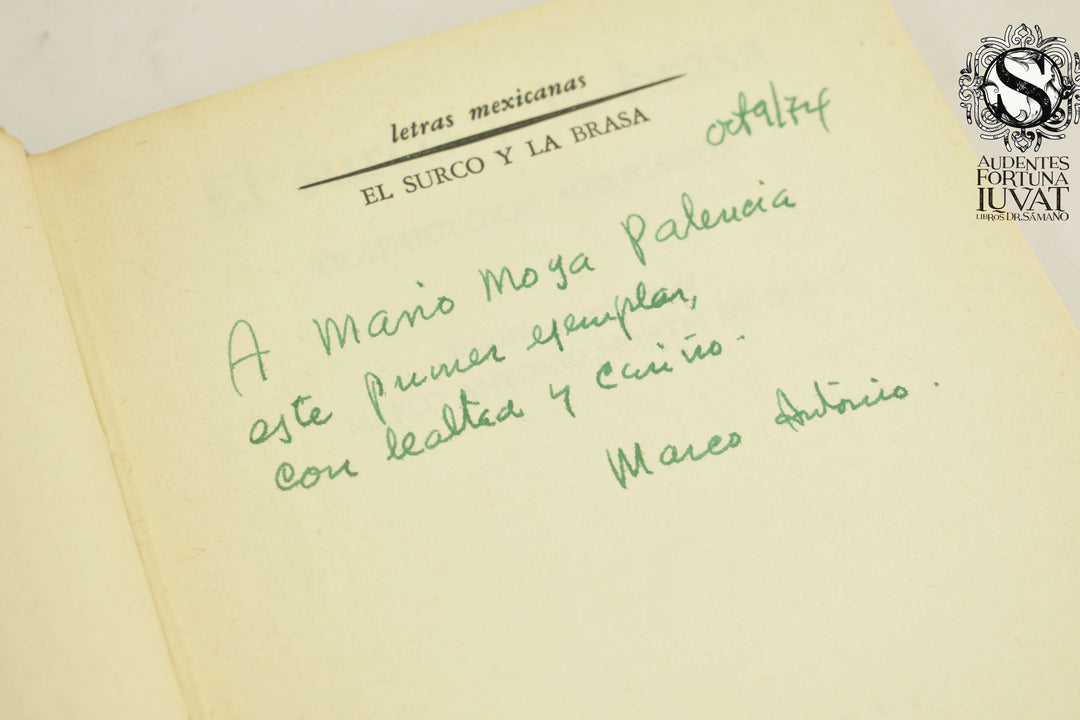 letras mexicanas
EL SURCO Y LA BRASA
oct 9/74
A Mario Moya Palencia
este primer ejemplar,
con lealtad y cariño.
Marco Antonio.
S
AUDENTES
FORTUNA
IUVAT
LIBROS DR. SÁMANO